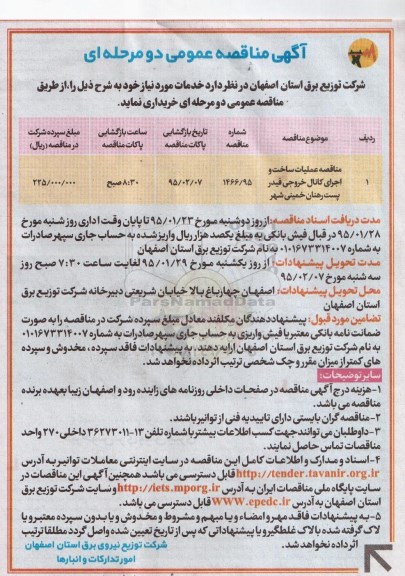 آگهی مناقصه عمومی دو مرحله ای
شرکت توزیع برق استان اصفهان در نظر دارد خدمات مورد نیاز خود به شرح ذیل را، از طریق
مناقصه عمومی دو مرحله ای خریداری نماید.
ردیف موضوع مناقصه شماره مناقصه تاریخ بازگشایی پاکات مناقصه ساعت بازگشایی پاکات مناقصه مبلغ سپرده شرکت در مناقصه (ریال)
۱ مناقصه عملیات ساخت و اجرای کانال خروجی فیدر پست رهنان خمینی شهر ۱۴۶۶/۹۵ ۹۵/۰۲/۰۷ ۸:۳۰ صبح ۲۲۵/۰۰۰/۰۰۰
مدت دریافت اسناد مناقصه: از روز دوشنبه مورخ ۹۵/۰۱/۲۳ تا پایان وقت اداری روز شنبه مورخ
۹۵/۰۱/۲۸ در قبال فیش بانکی به مبلغ یکصد هزار ریال واریز شده به حساب جاری سپهر صادرات
به شماره ۰۱۰۱۶۷۳۳۱۴۰۰۷ به نام شرکت توزیع برق استان اصفهان
مدت تحویل پیشنهادات: از روز یکشنبه مورخ ۹۵/۰۱/۲۹ لغایت ساعت ۷:۳۰ صبح روز
سه شنبه مورخ ۹۵/۰۲/۰۷
محل تحویل پیشنهادات: اصفهان چهارباغ بالا خیابان شریعتی دبیرخانه شرکت توزیع برق
استان اصفهان
تضامین مورد قبول: پیشنهاددهندگان مکلفند معادل مبلغ سپرده شرکت در مناقصه را به صورت
ضمانت نامه بانکی معتبر یا فیش واریزی به حساب جاری سپهر صادرات به شماره ۰۱۰۱۶۷۳۳۱۴۰۰۷
به نام شرکت توزیع برق استان اصفهان ارایه دهند. به پیشنهادات فاقد سپرده، مخدوش و سپرده
های کمتر از میزان مقرر و چک شخصی ترتیب اثر داده نخواهد شد.
سایر توضیحات:
۱-هزینه درج آگهی مناقصه در صفحات داخلی روزنامه های زاینده رود و اصفهان زیبا بعهده برنده
مناقصه می باشد.
۲-مناقصه گران بایستی دارای تاییدیه فنی از توانیر باشند.
۳-داوطلبان می توانند جهت کسب اطلاعات بیشتر با شماره تلفن ۱۳-۳۶۲۷۳۰۱۱ داخلی ۲۷۰ واحد
مناقصات تماس حاصل نمایند.
۴-اسناد و مدارک و اطلاعات کامل این مناقصه در سایت اینترنتی معاملات توانیر به آدرس
http://tender.tavanir.org.ir قابل دسترسی می باشد همچنین آگهی این مناقصات در
سایت پایگاه ملی مناقصات ایران به آدرس http://iets.mporg.ir و سایت شرکت توزیع برق
استان اصفهان به آدرس WWW.epedc.ir قابل دسترسی می باشد.
۵-به پیشنهادات فاقد مهر و امضاء و یا مبهم و مشروط و مخدوش و یا بدون سپرده معتبر و یا
لاک گرفته شده بالاک غلطگیر و یا پیشنهاداتی که پس از تاریخ تعیین شده واصل گردد مطلقا ترتیب
اثر داده نخواهد شد.
شرکت توزیع نیروی برق استان اصفهان
امور تدارکات و انبارها
ParsNamadData